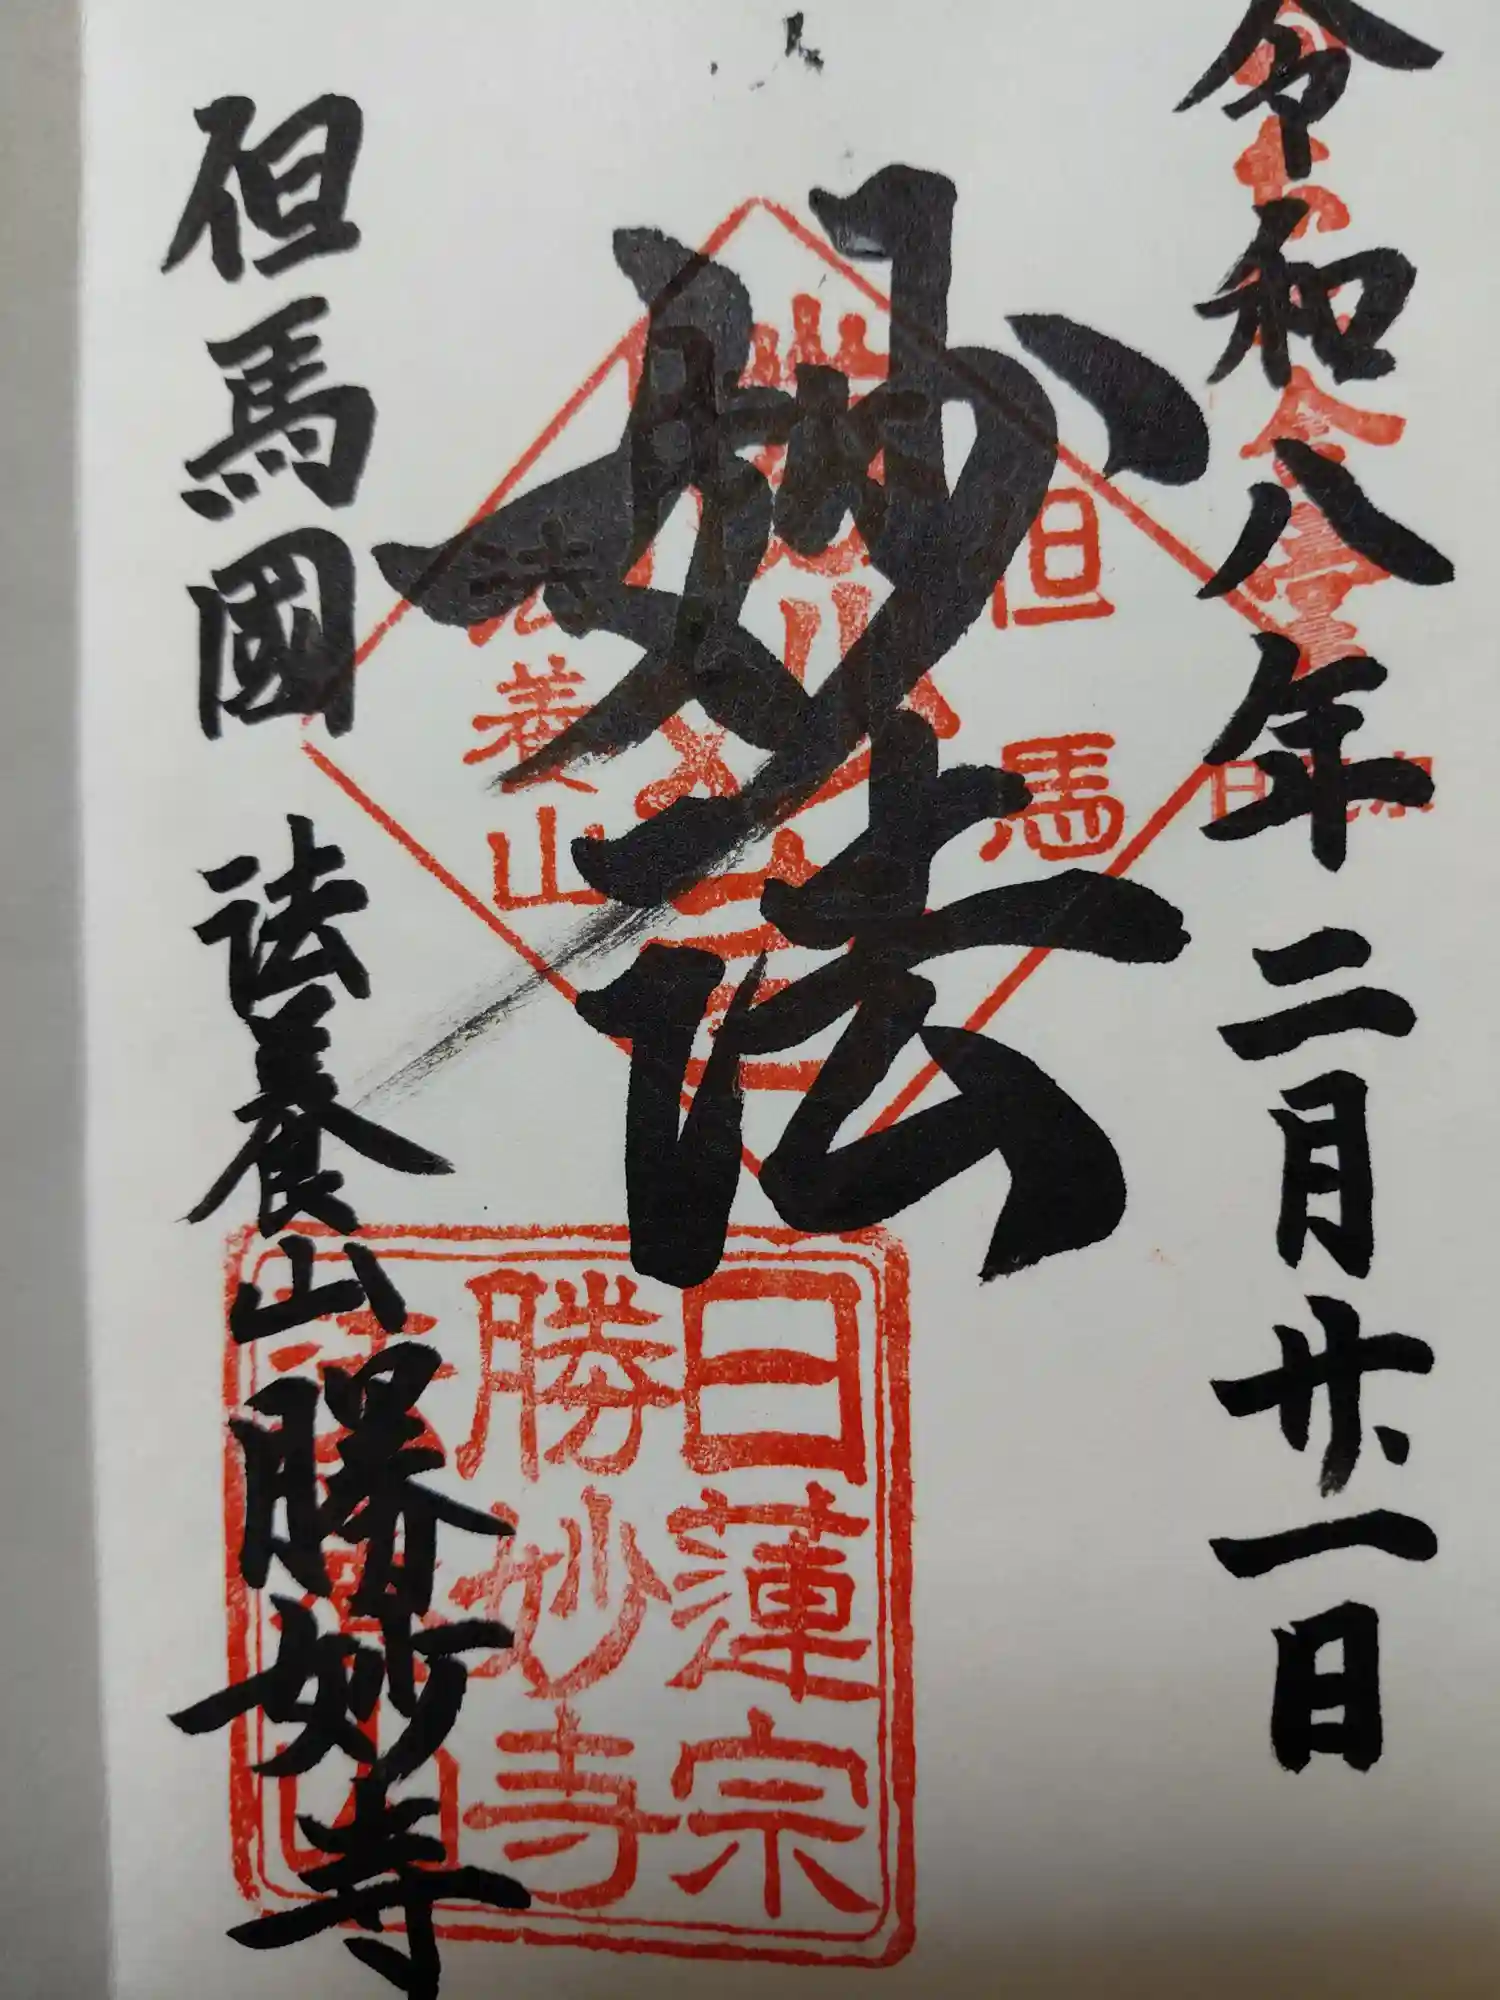 令和八年二月廿一日
妙法
但馬
法養山
但馬國 法養山勝妙寺
日蓮宗
勝妙寺
法養山